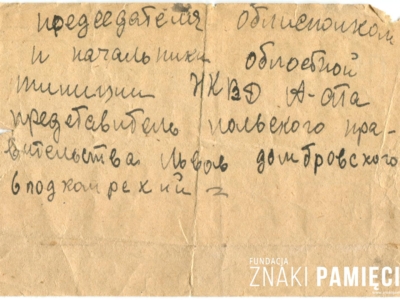 председателя облисполком
и начальники областной
милиции НКВД А-Ата
представитель польского пра-
вительства Львов домбровского
FUNDACJA
ZNAKI PAMIĘCI